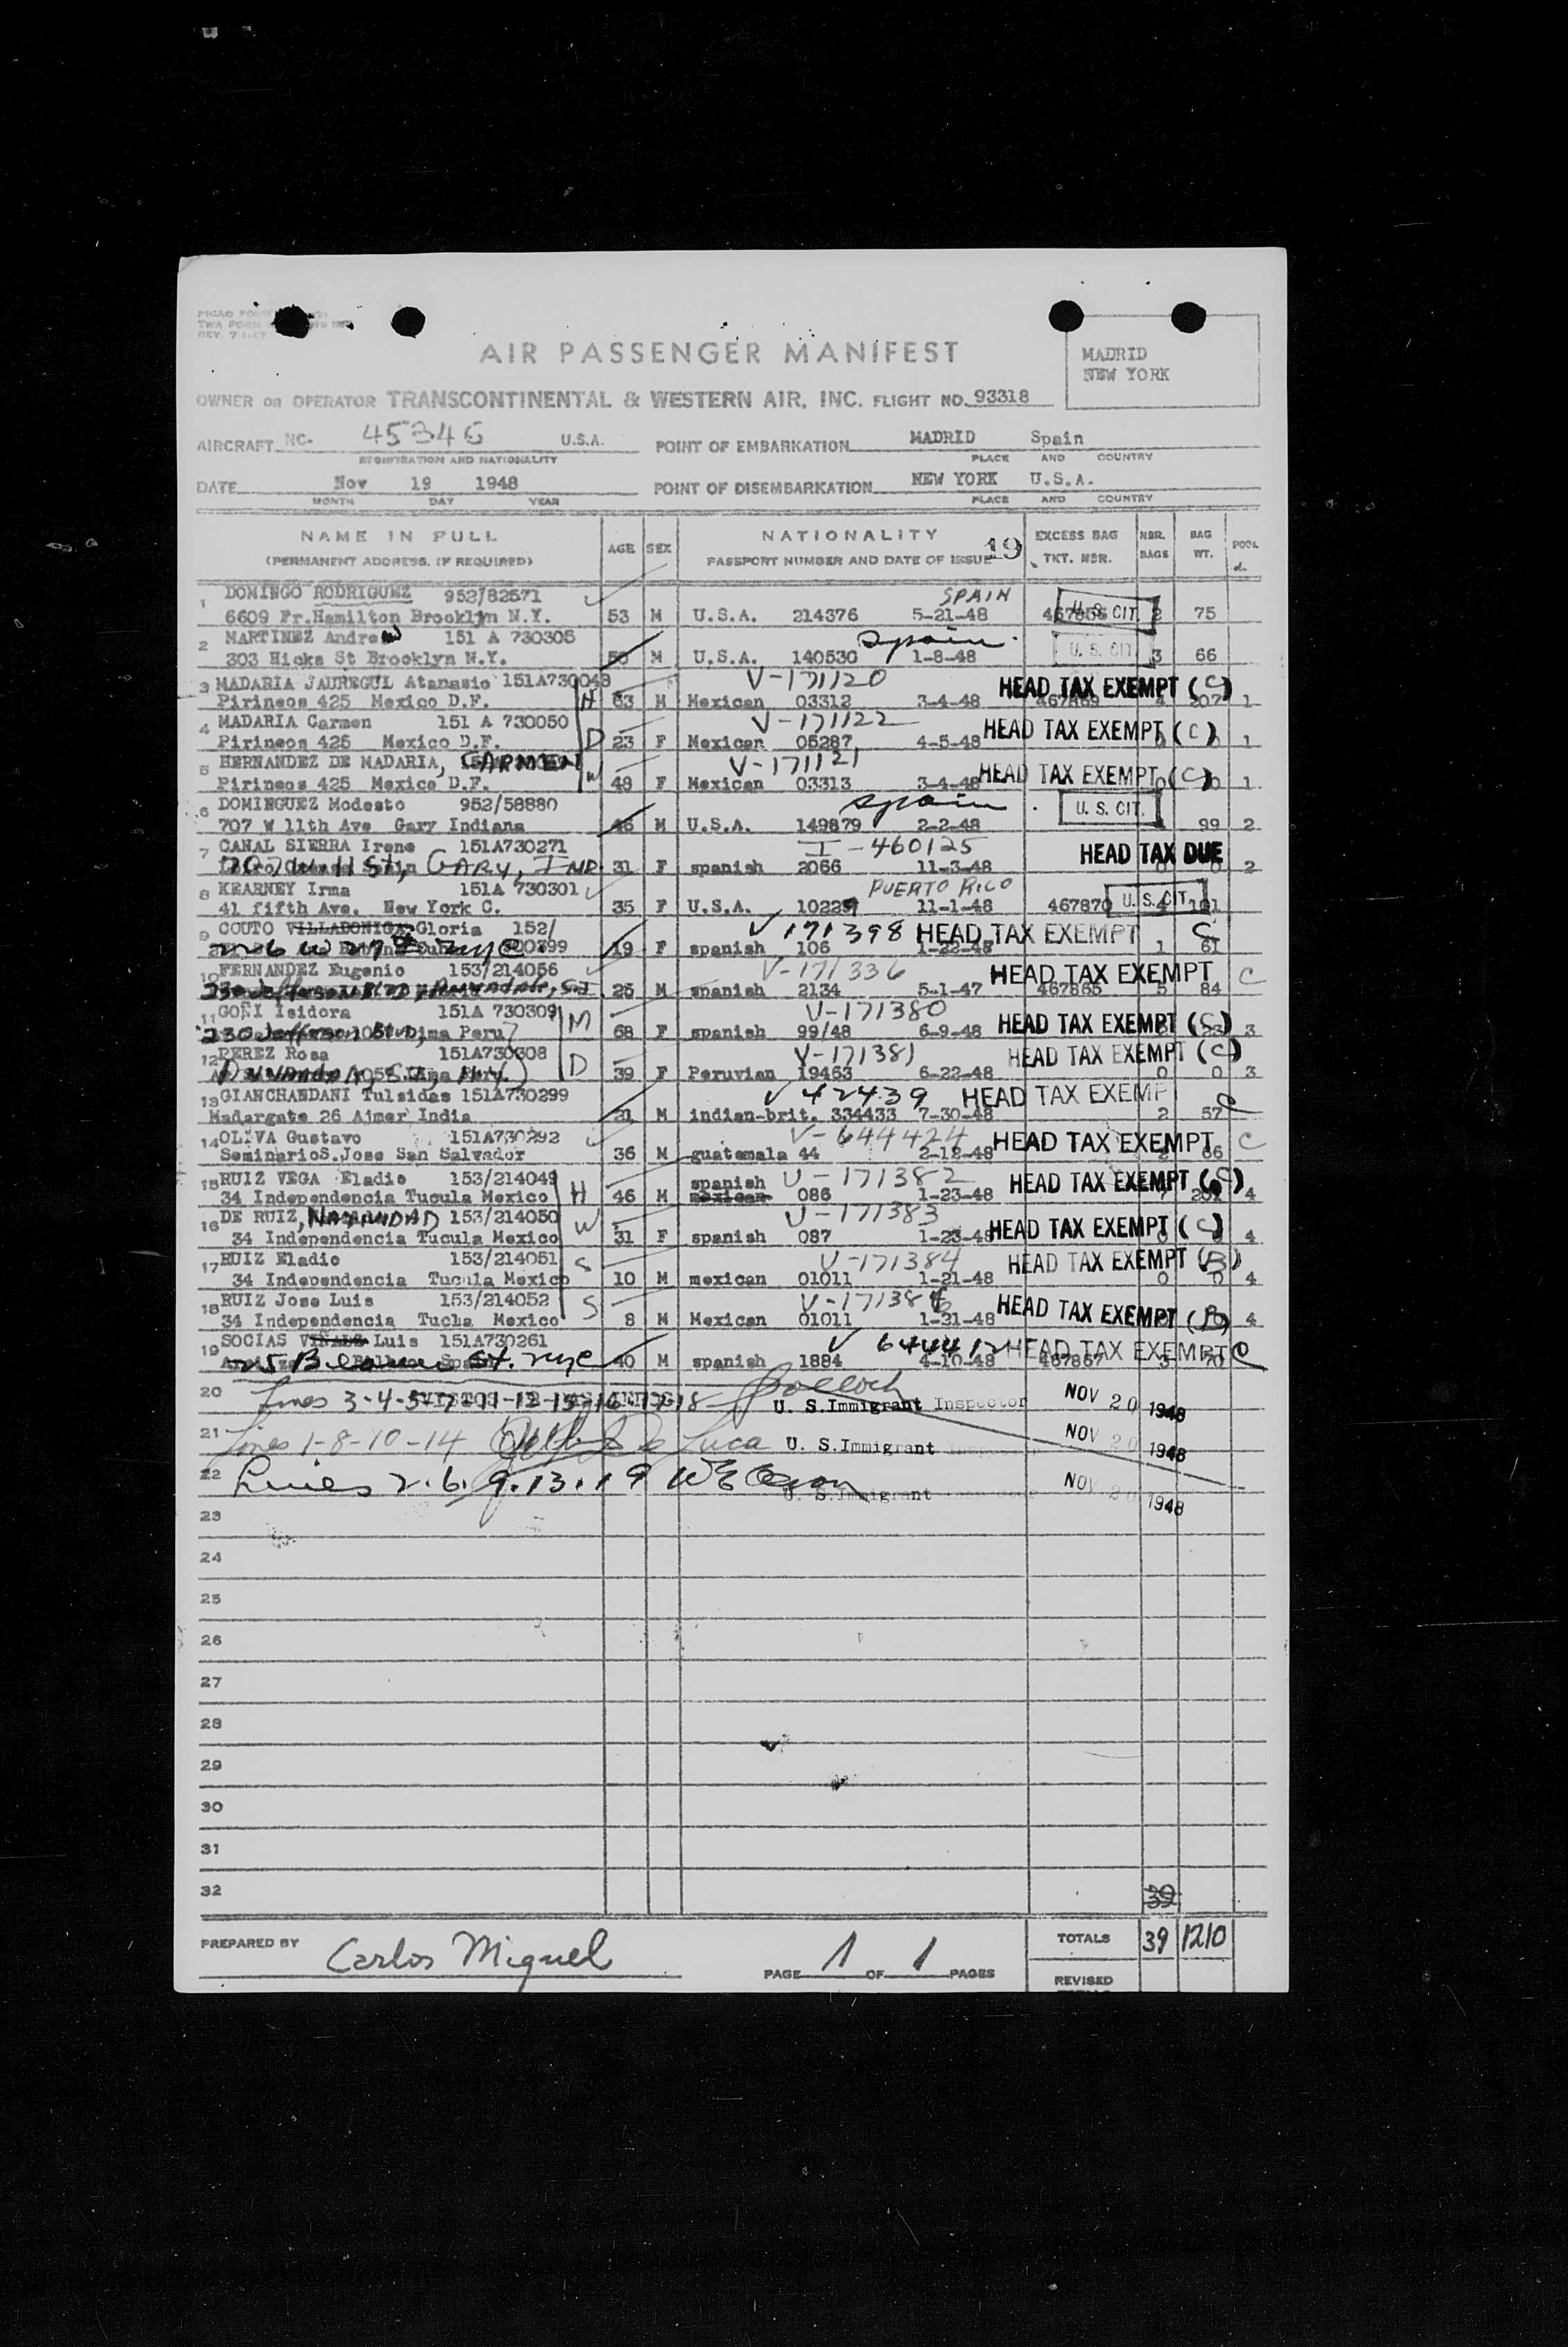 AIR PASSENGER MANIFEST
MADRID
NEW YORK
OWNER OR OPERATOR TRANSCONTINENTAL & WESTERN AIR, INC. FLIGHT NO. 93318
AIRCRAFT NC- 45346 U.S.A. POINT OF EMBARKATION MADRID Spain
REGISTRATION AND NATIONALITY PLACE AND COUNTRY
DATE Nov 19 1948 POINT OF DISEMBARKATION NEW YORK U.S.A.
MONTH DAY YEAR PLACE AND COUNTRY
NAME IN FULL AGE SEX NATIONALITY 19 EXCESS BAG NBR. BAG POOL
(PERMANENT ADDRESS, IF REQUIRED) PASSPORT NUMBER AND DATE OF ISSUE TKT. NBR. BAGS WT.
1 DOMINGO RODRIGUEZ 952/82571 SPAIN
6609 Fr.Hamilton Brooklyn N.Y. 53 M U.S.A. 214376 5-21-48 U.S. CIT. 2 75
2 MARTINEZ Andrew 151 A 730305 Spain
303 Hicks St Brooklyn N.Y. M U.S.A. 140530 1-8-48 U. S. CIT 3 66
3 MADARIA JAUREGUI Atanasio 151A730048 V-171120 HEAD TAX EXEMPT (C)
Pirineos 425 Mexico D.F. H 63 M Mexican 03312 3-4-48 467869 4 207 1
4 MADARIA Carmen 151 A 730050 V-171122 HEAD TAX EXEMPT (C)
Pirineos 425 Mexico D.F. D 23 F Mexican 05287 4-5-48 1
5 HERNANDEZ DE MADARIA, CARMEN V-171121 HEAD TAX EXEMPT (C)
Pirineos 425 Mexico D.F. W 48 F Mexican 03313 3-4-48 0 0 1
6 DOMINGUEZ Modesto 952/58880 Spain U. S. CIT.
707 W 11th Ave Gary Indiana M U.S.A. 149879 2-2-48 99 2
7 CANAL SIERRA Irene 151A730271 I-460125 HEAD TAX DUE
GARY, IND. 31 F spanish 2066 11-3-48 0 0 2
8 KEARNEY Irma 151A 730301 PUERTO RICO
41 fifth Ave. New York C. 35 F U.S.A. 11-1-48 467870 U. S. CIT. 4
9 COUTO VILLADONIGA Gloria 152/ V 171398 HEAD TAX EXEMPT C
19 F spanish 106 1-22-48 1 61
10 FERNANDEZ Eugenio 153/214056 V-171336 HEAD TAX EXEMPT C
25 M spanish 2134 5-1-47 467865 5 84
11 GOÑI Isidora 151A 730309 M V-171380
230 Jefferson Lima Peru 68 F spanish 99/48 6-9-48 HEAD TAX EXEMPT (C) 3
12 PEREZ Rosa 151A730308 V-171381 HEAD TAX EXEMPT (C)
D 39 F Peruvian 19463 6-22-48 0 0 3
13 GIANCHANDANI Tulsidas 151A730299 V 42439 HEAD TAX EXEMP C
Madargate 26 Ajmer India 21 M indian-brit. 334433 7-30-48 2 57
14 OLIVA Gustavo 151A730292 V-644424 HEAD TAX EXEMPT C
SeminarioS.Jose San Salvador 36 M guatemala 44 2-12-48 2 66
15 RUIZ VEGA Eladio 153/214049 spanish V-171382 HEAD TAX EXEMPT (C)
34 Independencia Tucula Mexico H 46 M mexican 086 1-23-48 4
16 DE RUIZ, 153/214050 W V-171383 HEAD TAX EXEMPT (C)
34 Independencia Tucula Mexico 31 F spanish 087 1-23-48 4
17 RUIZ Eladio 153/214051 S V-171384 HEAD TAX EXEMPT (B)
34 Independencia Tucula Mexico 10 M mexican 01011 1-21-48 0 0 4
18 RUIZ Jose Luis 153/214052 S HEAD TAX EXEMPT (B)
34 Independencia Tucla Mexico 8 M Mexican 01011 1-21-48 4
19 SOCIAS Luis 151A730261 V 644412 HEAD TAX EXEMPT C
40 M spanish 1884 4-10-48 467867 3 70
20 Lines 3-4-5-7-11-12-15-16-17-18 Pollock U. S. Immigrant Inspector NOV 20 1948
21 Lines 1-8-10-14 De Luca U. S. Immigrant NOV 20 1948
22 Lines 2.6.9.13.19 U. S. Immigrant NOV 20 1948
23
24
25
26
27
28
29
30
31
32 39
PREPARED BY Carlos Miguel PAGE 1 OF 1 PAGES TOTALS 39 1210
REVISED